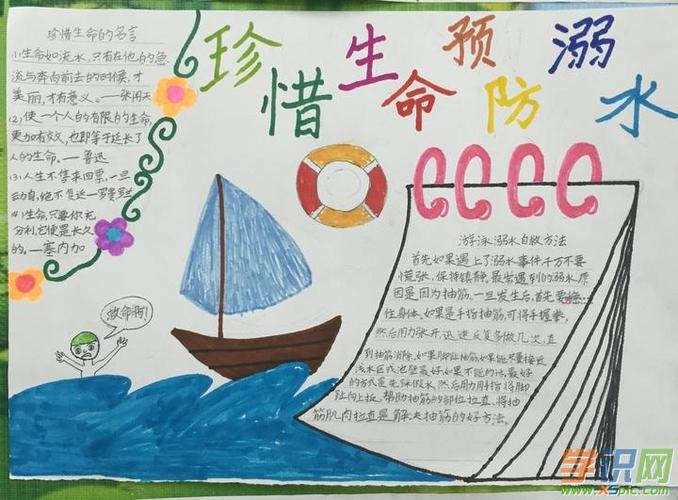 珍惜生命 预防溺水
珍惜生命的名言
(1)生命如流水,只有在他的急
流与奔向前去的时候,才
美丽,才有意义。——张闻天
(2)使一个人的有限的生命,
更加有效,也即等于延长了
人的生命。——鲁迅
(3)人生不售来回票,一旦
动身,绝不复返——罗曼罗兰
(4)生命,只要你充
分利,它便是长久
的。——塞内加
救命啊!
游泳溺水自救方法
首先如果遇上了溺水事件千万不要
慌张,保持镇静,最常遇到的溺水原
因是因为抽筋。一旦发生后,首先要稳
住身体,如果是手指抽筋,可将手握拳,
然后用力张开,迅速反复多做几次,直
到抽筋消除,如果脚趾抽筋如果能尽量接近
浅水区或池壁最好如果不能的话,最好
的方式是先深吸水,然后用力用手指将脚
趾向上扳,帮助抽筋的部位拉直,将抽
筋肌肉拉直是解决抽筋的好方法。
学识网
www.xspic.com